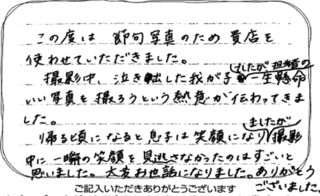 この度は 節句写真のため 貴店を
使わせていただきました。
撮影中、泣き出した我が子でしたが 担当者の一生懸命
いい写真を撮ろうという熱意が伝わってきま
した。
帰る頃になると息子は笑顔になりましたが 撮影
中に一瞬の笑顔を見逃さなかったのはすごいと
思いました。大変お世話になりました。ありがとう
ございました。
ご記入いただきありがとうございます